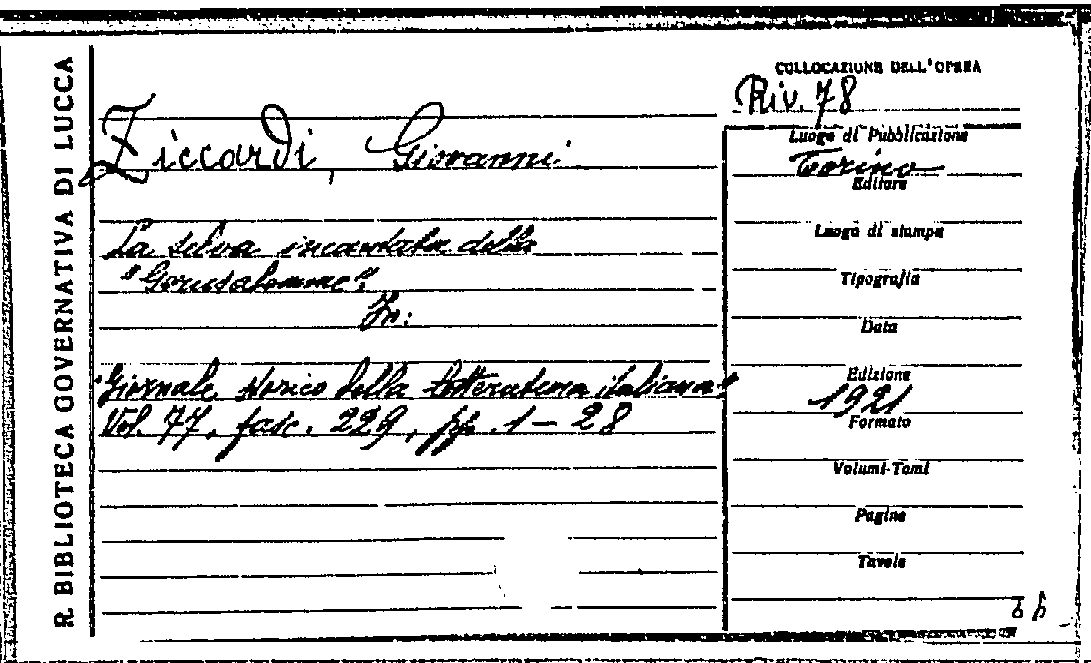 R. BIBLIOTECA GOVERNATIVA DI LUCCA
Ziccardi, Giovanni
La selva incantata della
"Gerusalemme".
In:
"Giornale storico della letteratura italiana"
Vol. 77, fasc. 229, pp. 1 - 28
COLLOCAZIONE DELL'OPERA
Riv. 78
Luogo di Pubblicazione
Torino
Editore
Luogo di stampa
Tipografia
Data
Edizione
1921
Formato
Volumi-Tomi
Pagine
Tavole